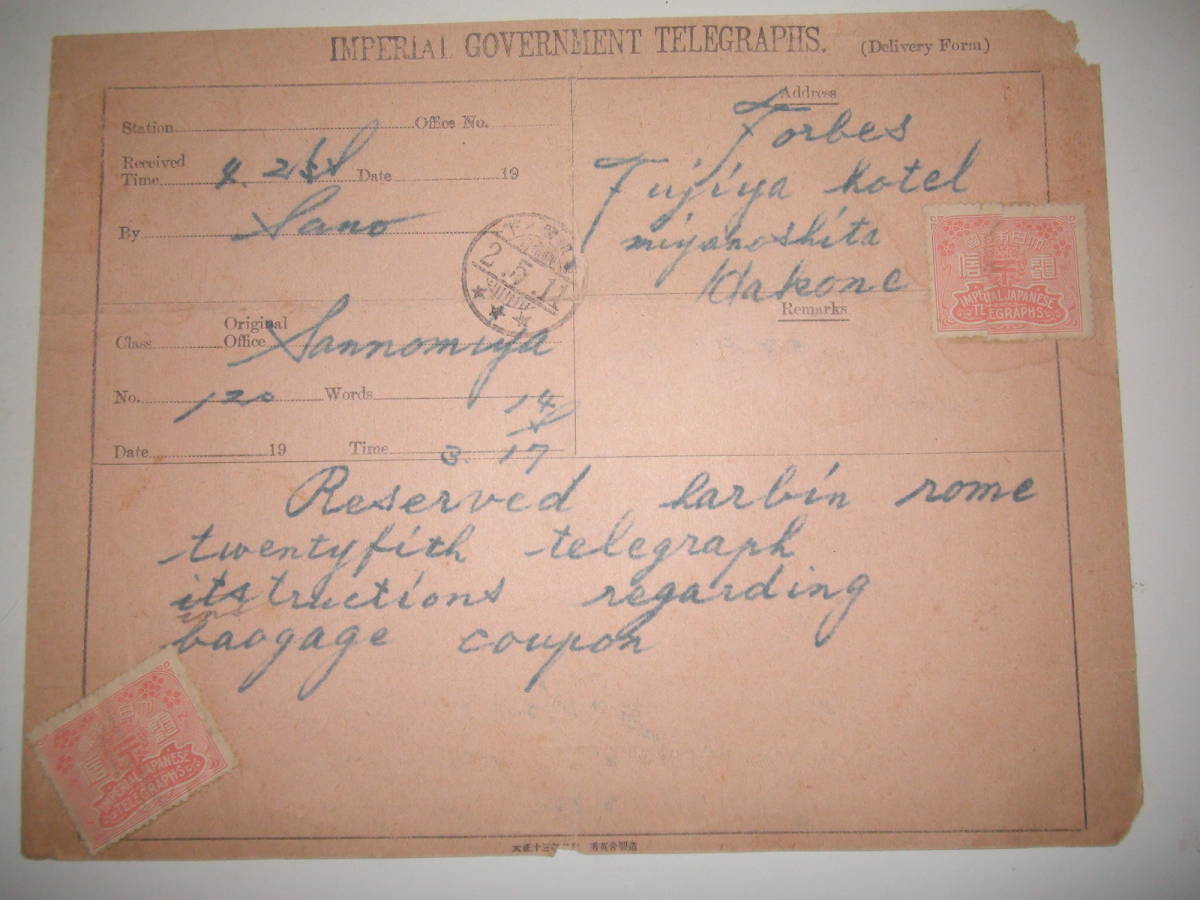 IMPERIAL GOVERNMENT TELEGRAPHS. (Delivery Form)
Station Office No.
Received
Time Date 19
By Sano
Address
Forbes
Fujiya hotel
miyanoshita
Hakone
2.5.11
Class Original Office Sannomiya
Remarks
No. 120 Words 14
Date 19 Time 3.17
Reserved harbin rome
twentyfith telegraph
itstructions regarding
ins
baggage coupon
IMPERIAL JAPANESE
TELEGRAPHS
IMPERIAL JAPANESE
TELEGRAPHS
大正十三年